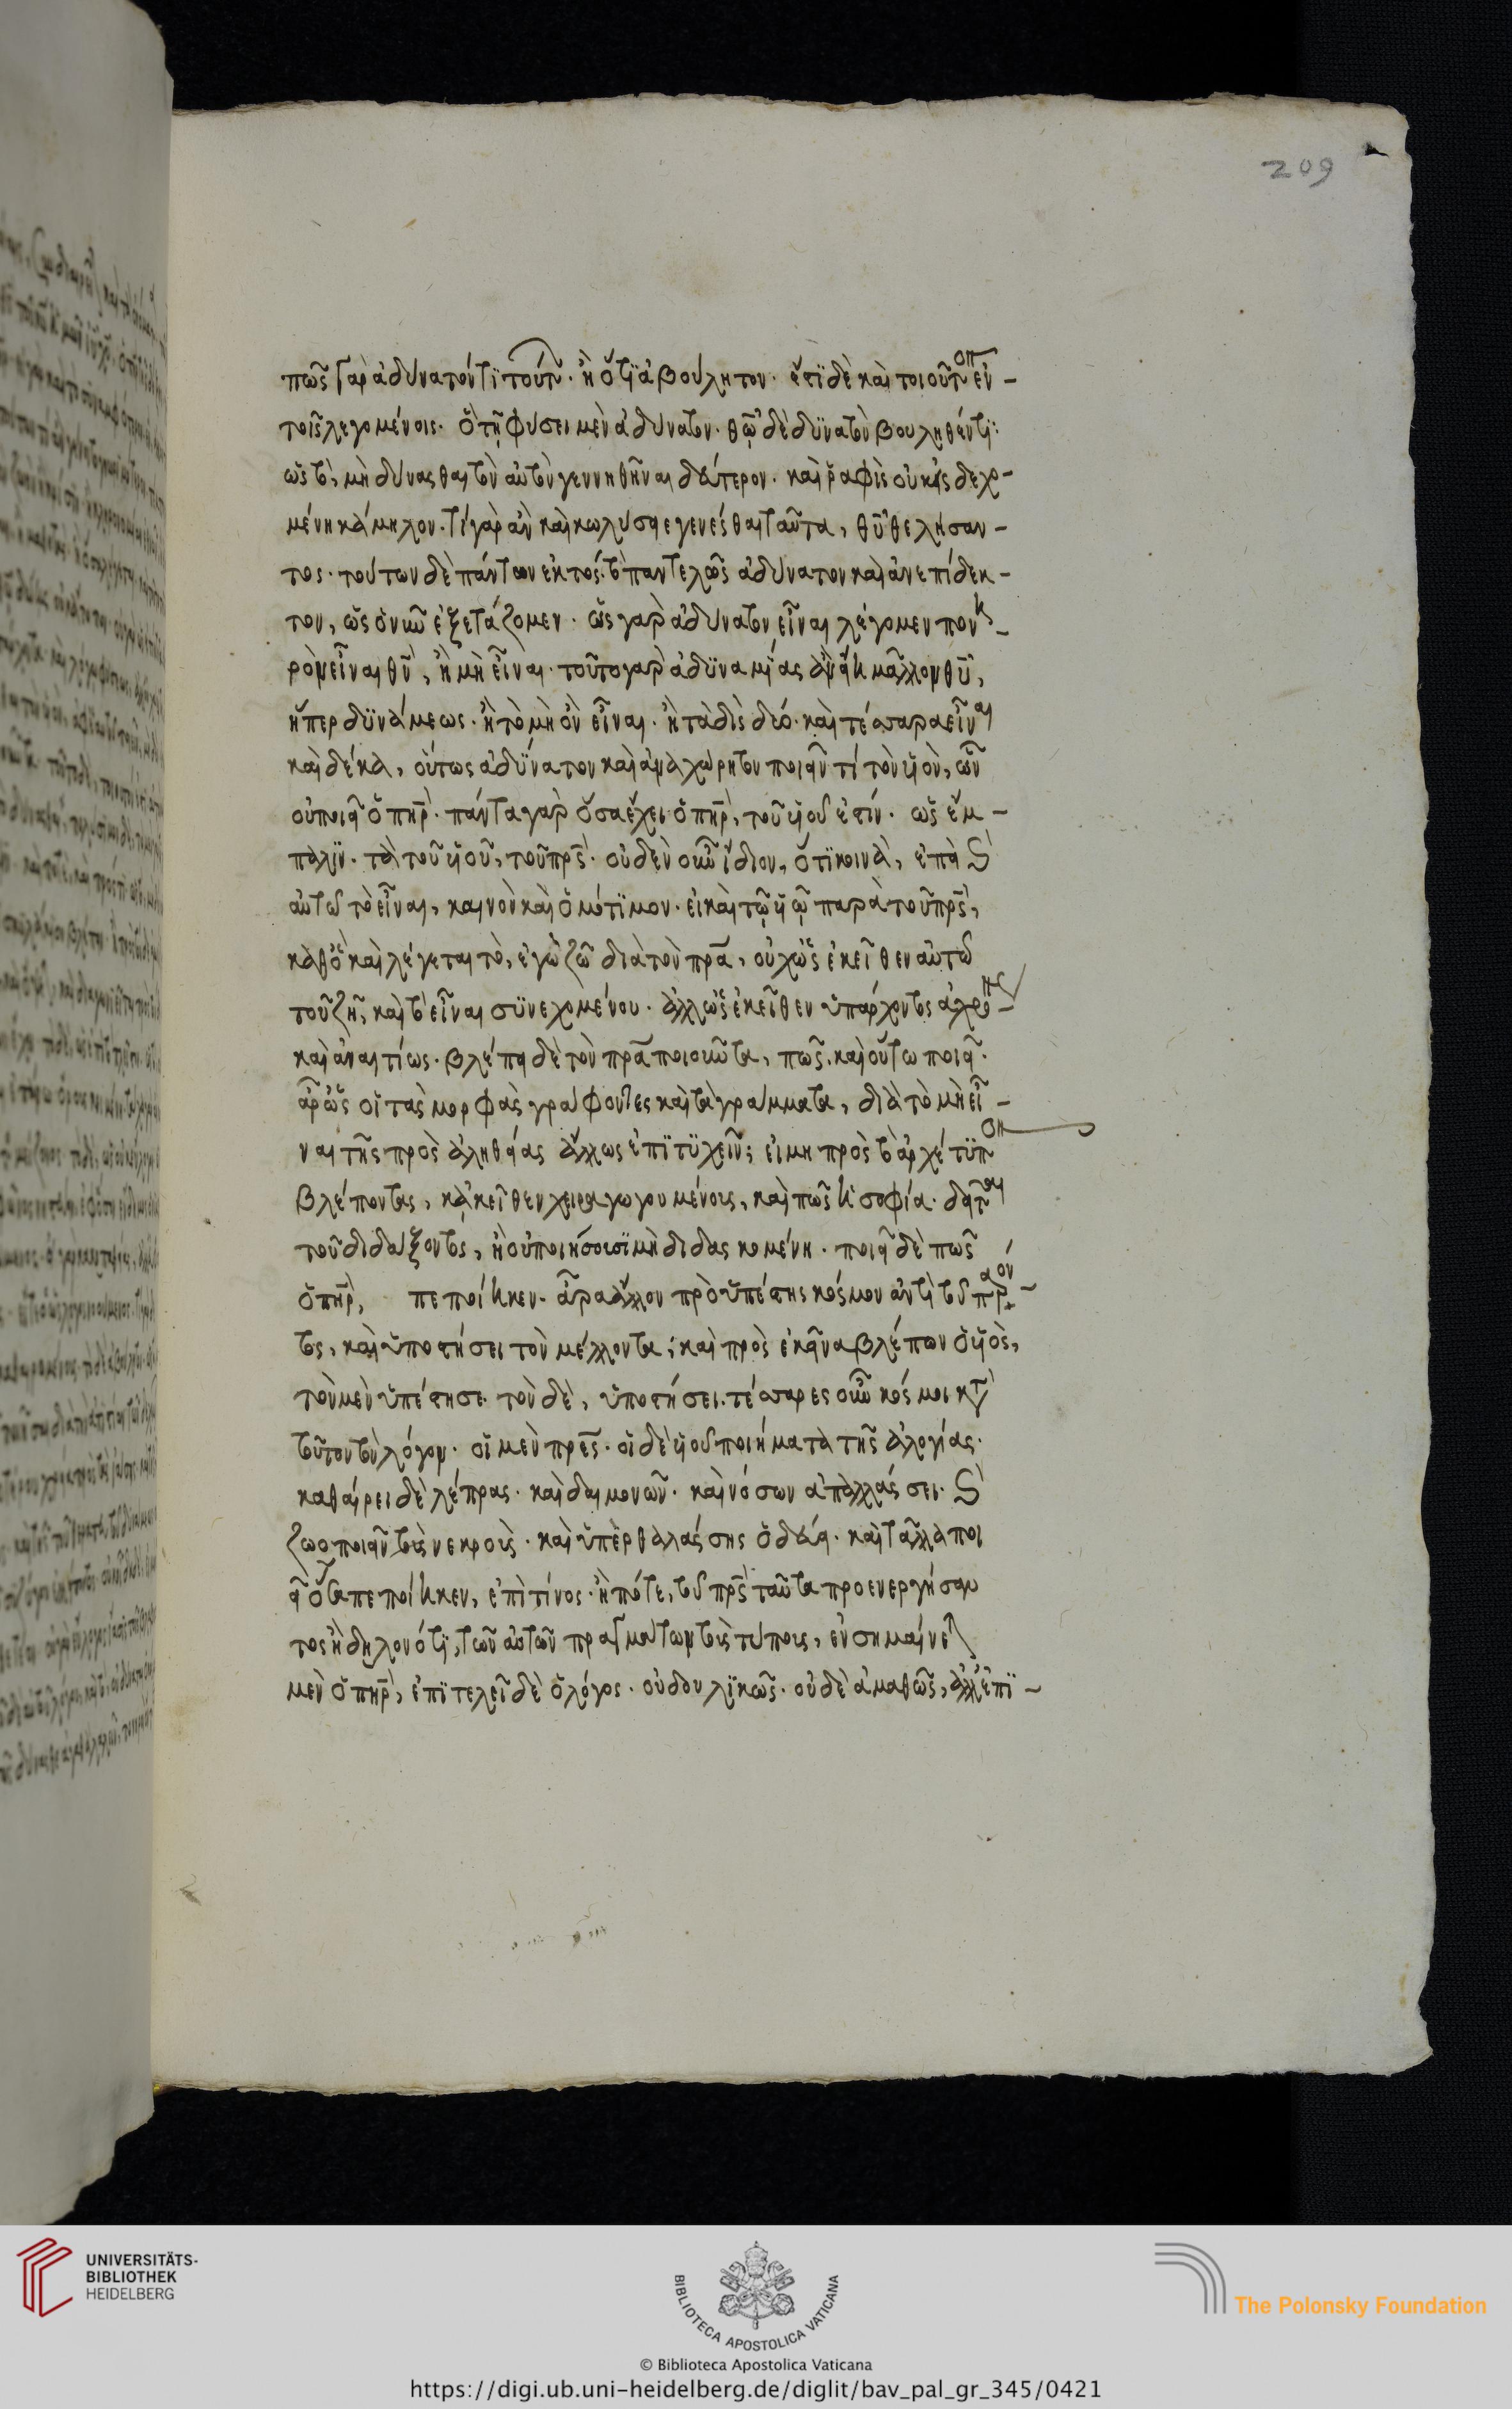 209
πῶς γὰρ ἀδύνατόν τι τούτων. ἢ ὅτι ἀβούλητον. ἔτι δὲ καὶ τοιοῦτον ἐν –
τοῖς λεγομένοις. ὃ τῇ φύσει μὲν ἀδύνατον. θῶ δὲ δυνατὸν βουληθέντι·
ὡς τὸ, μὴ δύνασθαι τὸν αὐτὸν γεννηθῆναι δεύτερον. καὶ ῥαφὶς οὐκ εἰσδεχο–
μένη κάμηλον. τί γὰρ ἂν καὶ κωλύσῃε γενέσθαι ταῦτα, θῦ θελήσαν–
τος. τούτων δὲ πάντων ἐκτός. τὸ παντελῶς ἀδύνατον καὶ ἀνεπίδεκ–
τον, ὡς ὃ νῦν ἐξετάζομεν. ὡς γὰρ ἀδύνατον εἶναι λέγομεν πονη–
ρὸν εἶναι θν, ἢ μὴ εἶναι. τοῦτο γὰρ ἀδυναμίας ἂν εἴη μᾶλλον θῦ,
ἤπερ δυνάμεως. ἢ τὸ μὴ ὂν εἶναι. ἢ τὰ δὶς δύο. καὶ τέσσαρα εἶναι
καὶ δέκα, οὕτως ἀδύνατον καὶ ἀναχώρητον ποιεῖν τί τὸν υἱὸν, ὧν
οὐ ποιεῖ ὁ πηρ. πάντα γὰρ ὅσα ἔχει ὁ πηρ, τοῦ υἱοῦ ἐστίν. ὡς ἔμ–
παλιν. τὰ τοῦ υἱοῦ, τοῦ πρς. οὐδὲν οὖν ἴδιον, ὅτι κοινὰ, ἐπεὶ καὶ
αὐτὸ τὸ εἶναι, καινὸν καὶ ὁμότιμον. εἰ καὶ τῶ υἱῶ παρὰ τοῦ πρς,
καθὃ καὶ λέγεται τὸ, ἐγὼ ζῶ διὰ τὸν πρα, οὐχ ὡς ἐκεῖθεν αὐτῶ
τοῦ ζῆν καὶ τὸ εἶναι συνεχομένου. ἀλλ ὡς ἐκεῖθεν ὑπάρχοντος ἀχρόνως
καὶ ἀναιτίως. βλέπει δὲ τὸν πρα ποιοῦντα, πῶς. καὶ οὕτω ποιεῖ.
ἆρ ὡς οἱ τὰς μορφὰς γράφοντες καὶ τὰ γράμματα, διὰ τὸ μὴ εἶ–
ναι τῆς πρὸς ἀληθείας ἄλλως ἐπιτυχεῖν; εἰ μη πρὸς τὸ ἀρχέτυπον
βλέποντας, κἀκεῖθεν χειραγωγουμένους, καὶ πῶς ἡ σοφία. δεῖται
τοῦ διδάξοντος, ἢ οὐ ποιήσουσι μὴ διδασκομένη. ποιεῖ δὲ πῶς
ὁ πηρ, πεποίηκεν. ἆρα ἄλλον πρὸ ὑπέστης κόσμον ἀντὶ τοῦ παρόν–
τος, καὶ ὑποστήσει τὸν μέλλοντα; καὶ πρὸς ἐκεῖνα βλέπων ὁ υἱὸς,
τὸν μὲν ὑπέστησε. τὸν δὲ, ὑποστήσει. τέσσαρες οὖν κόσμοι κατὰ
τοῦτον τὸν λόγον. οἱ μὲν πρς. οἱ δὲ υἱοῦ ποιήματα τῆς ἀλογίας.
καθαίρει δὲ λέπρας. καὶ δαιμονῶν. καὶ νόσων ἀπαλλάσσει. καὶ
ζωοποιεῖν τοὺς νεκροὺς. καὶ ὑπὲρ θαλάσσης ὁδεύει. καὶ τἄλλα ποι
εῖ ὅσα πεποίηκεν, ἐπὶ τίνος. ἢ πότε, τοῦ πρς ταῦτα προενεργήσαν
τος ἢ δηλονότι, τῶν αὐτῶν πραγμάτων τοὺς τύπους, ἐνσημαίνεται
μὲν ὁ πηρ, ἐπιτελεῖ δὲ ὁ λόγος. οὐ δουλικῶς. οὐδὲ ἀμαθῶς, ἀλλ ἐπι–
UNIVERSITÄTS-
BIBLIOTHEK
HEIDELBERG
BIBLIOTECA APOSTOLICA VATICANA
The Polonsky Foundation
© Biblioteca Apostolica Vaticana
https://digi.ub.uni-heidelberg.de/diglit/bav_pal_gr_345/0421